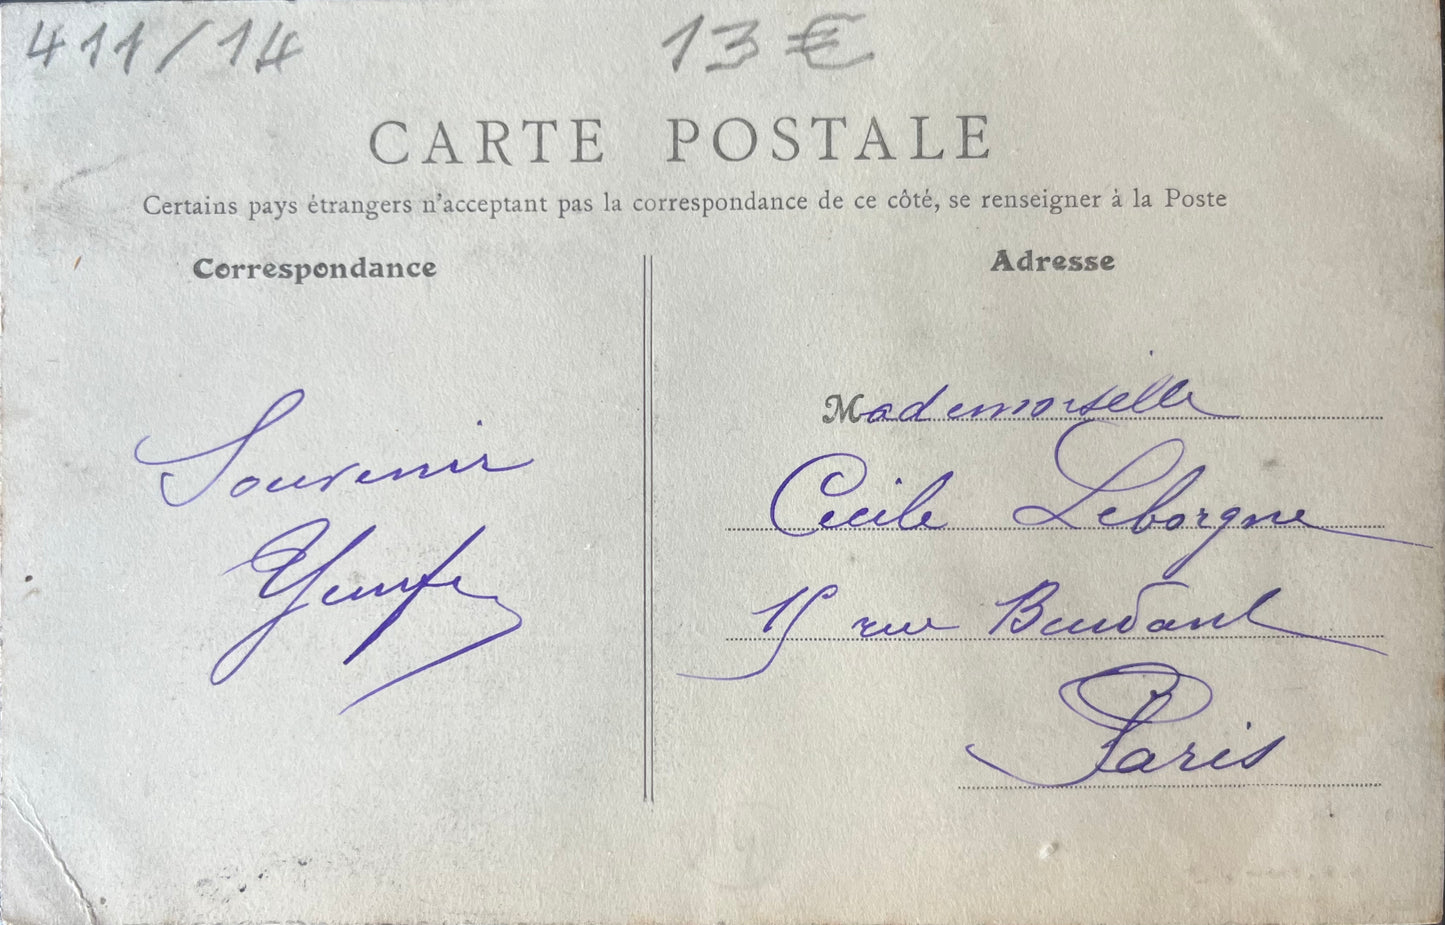 411/14
13 €
CARTE POSTALE
Certains pays étrangers n'acceptant pas la correspondance de ce côté, se renseigner à la Poste
Correspondance
Adresse
Souvenir
Mademoiselle
Cecile Leborgne
15 rue
Paris